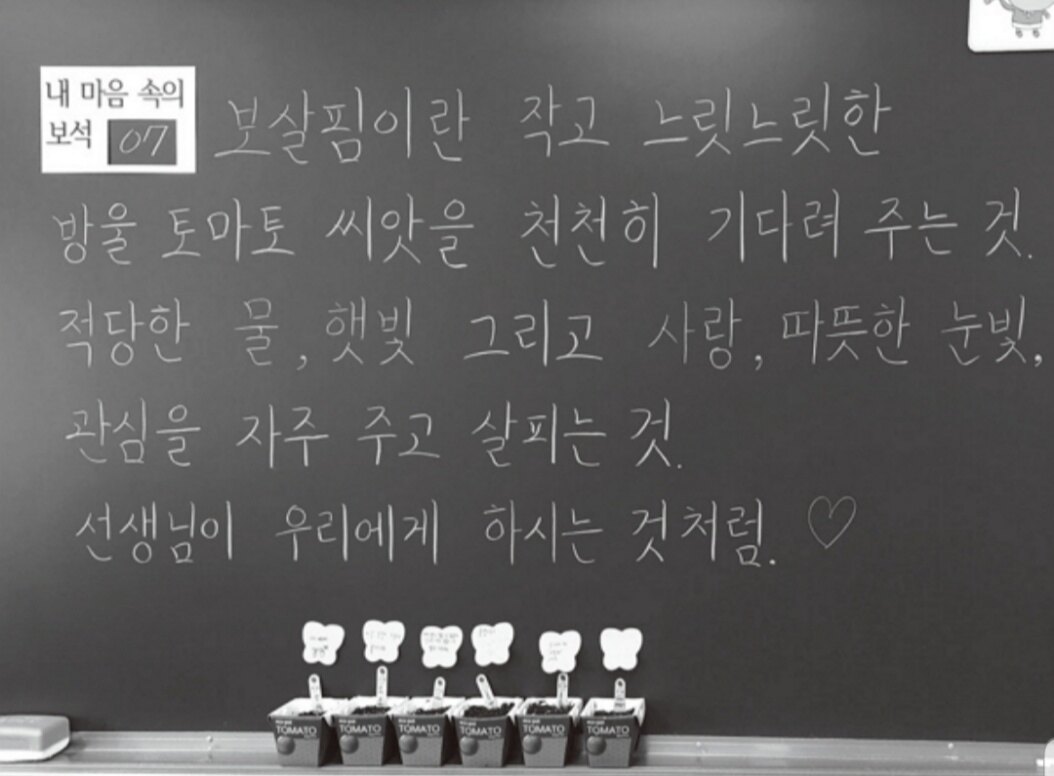 내 마음 속의
보석 07
보살핌이란 작고 느릿느릿한
방울 토마토 씨앗을 천천히 기다려 주는 것.
적당한 물, 햇빛 그리고 사랑, 따뜻한 눈빛,
관심을 자주 주고 살피는 것.
선생님이 우리에게 하시는 것처럼. ♡
TOMATO TOMATO TOMATO TOMATO TOMATO TOMATO